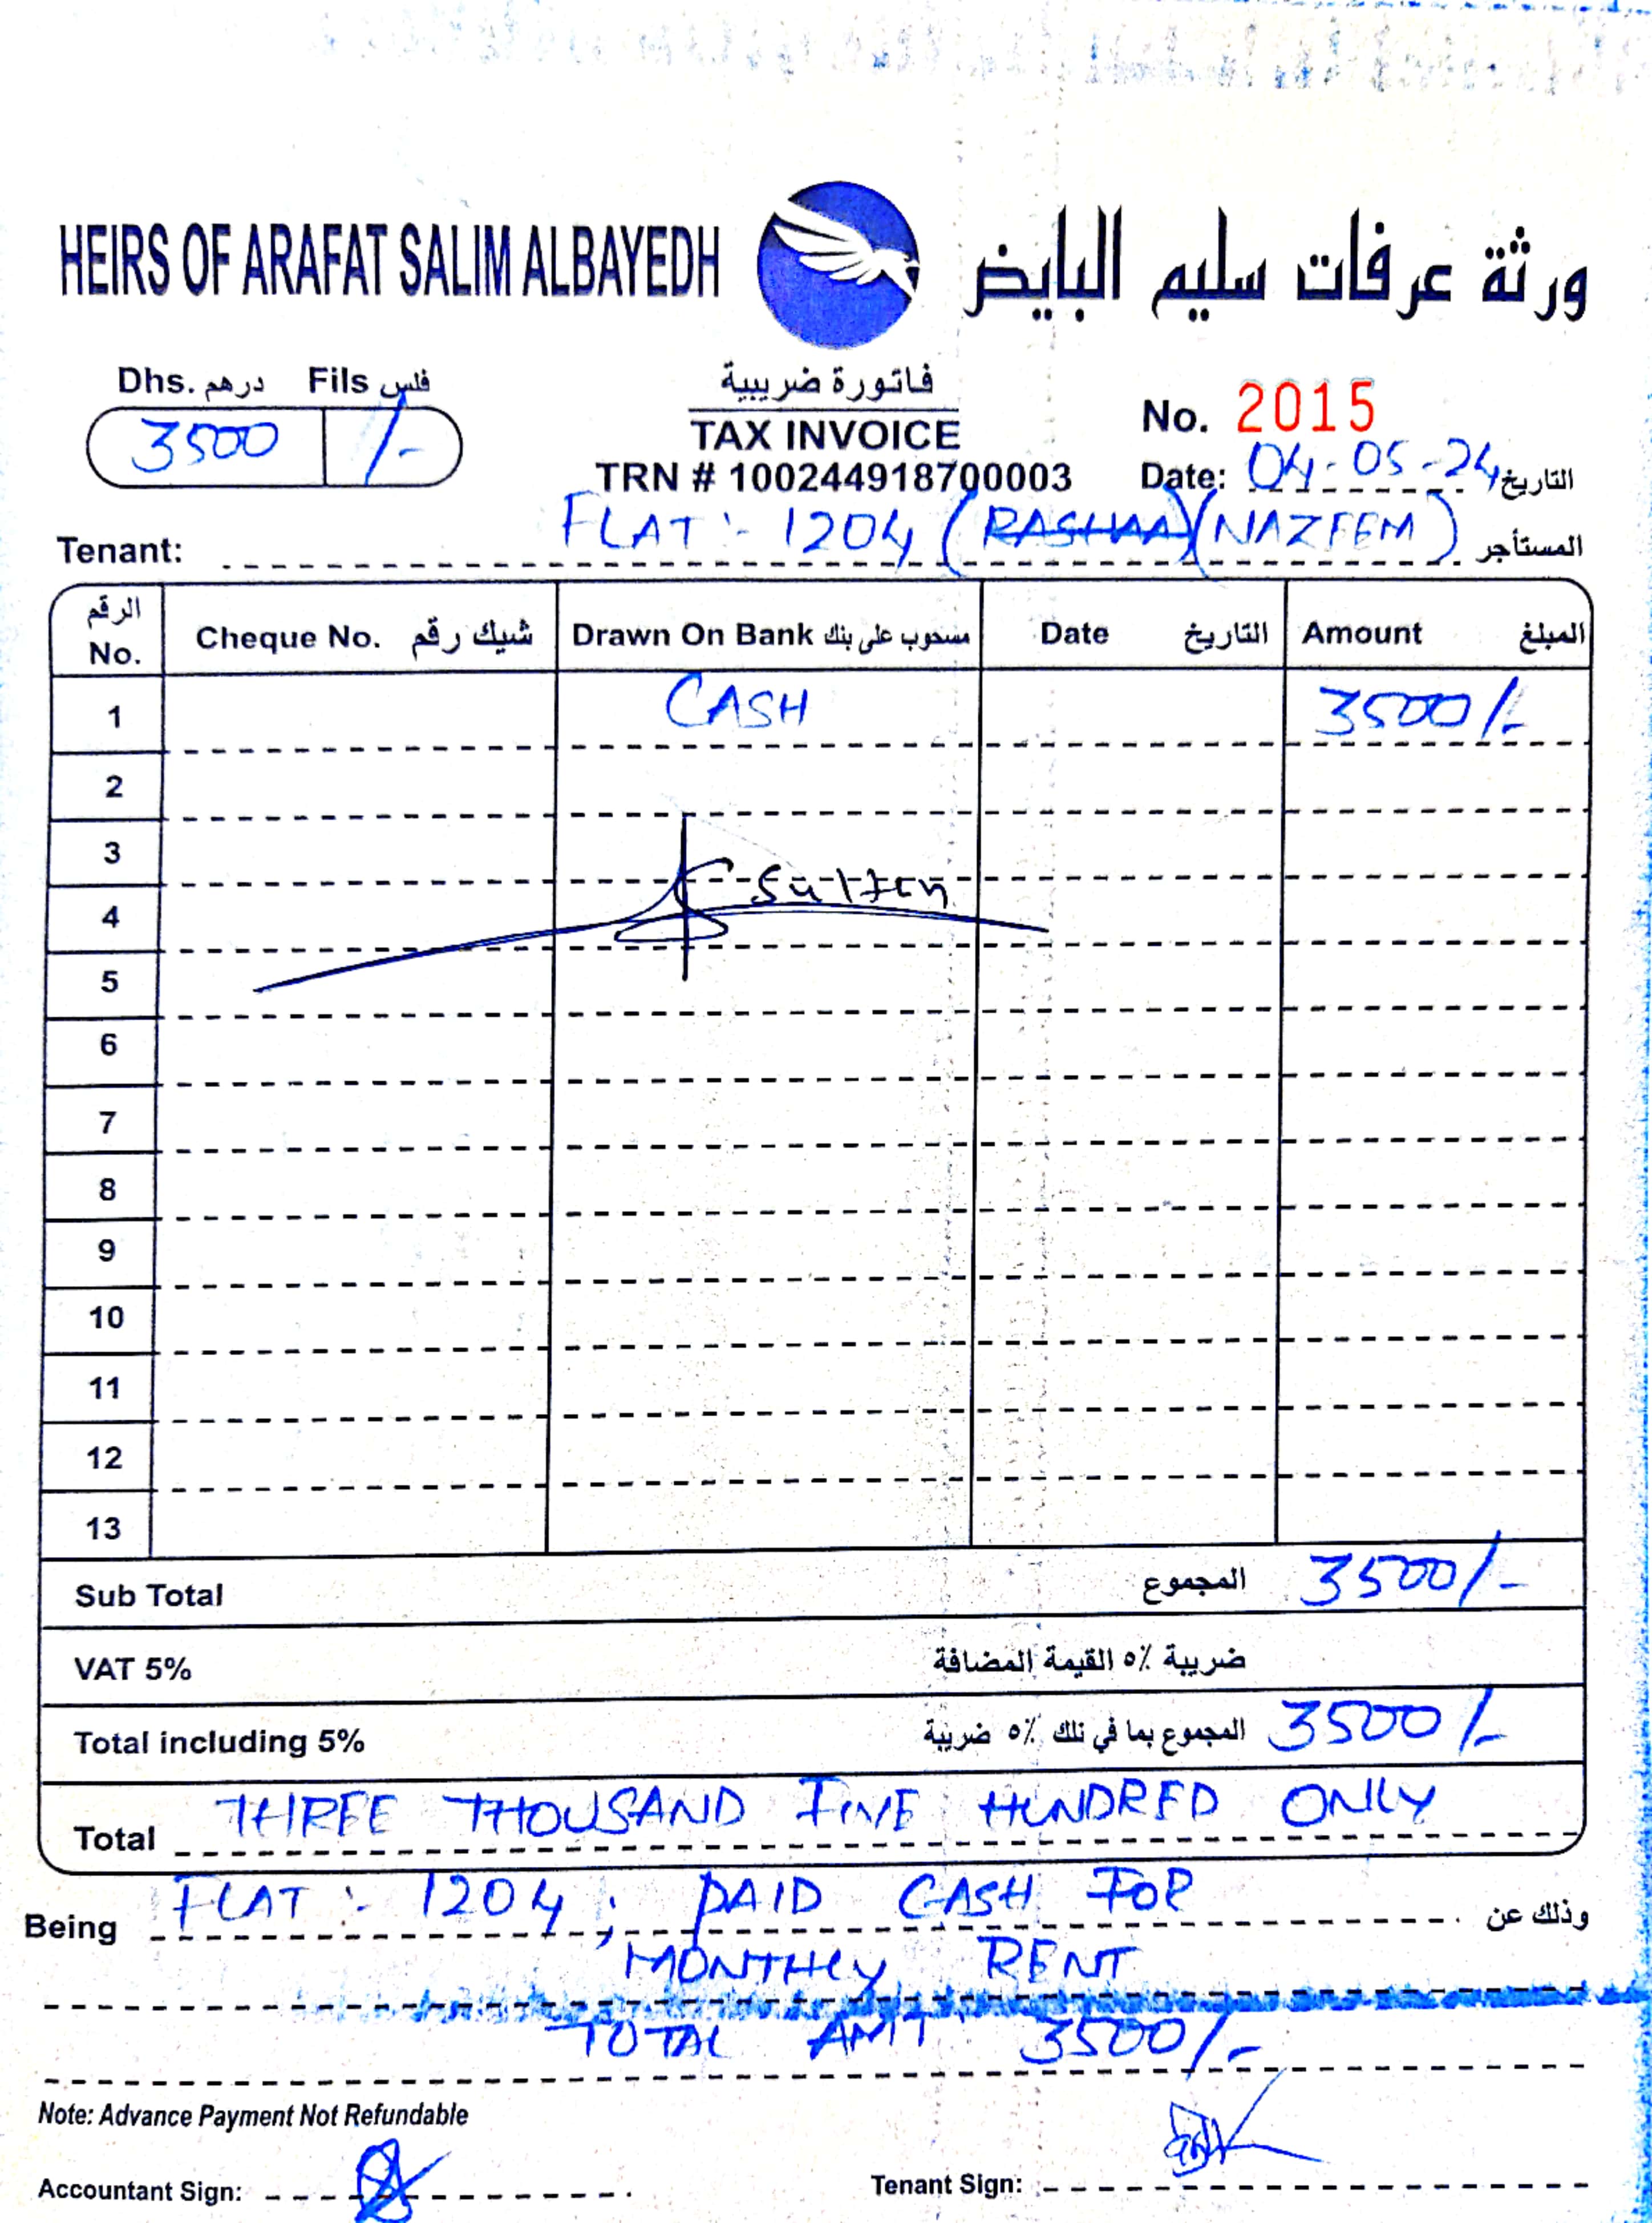 HEIRS OF ARAFAT SALIM ALBAYEDH ورثة عرفات سليم البايض
Dhs. درهم Fils فلس
3500 /-
فاتورة ضريبية
TAX INVOICE
TRN # 100244918700003
No. 2015
Date: 04-05-24 التاريخ
Tenant: FLAT :- 1204 (RASHAA) (NAZEEM) المستأجر
الرقم No. Cheque No. شيك رقم Drawn On Bank مسحوب على بنك Date التاريخ Amount المبلغ
1 CASH 3500/-
2
3
Sultan
4
5
6
7
8
9
10
11
12
13
Sub Total المجموع 3500/-
VAT 5% ضريبة ٥٪ القيمة المضافة
Total including 5% المجموع بما في ذلك ٥٪ ضريبة 3500/-
Total THREE THOUSAND FIVE HUNDRED ONLY
Being FLAT :- 1204, PAID CASH FOR وذلك عن
MONTHLY RENT
TOTAL AMT 3500/-
Note: Advance Payment Not Refundable
Accountant Sign: Tenant Sign: